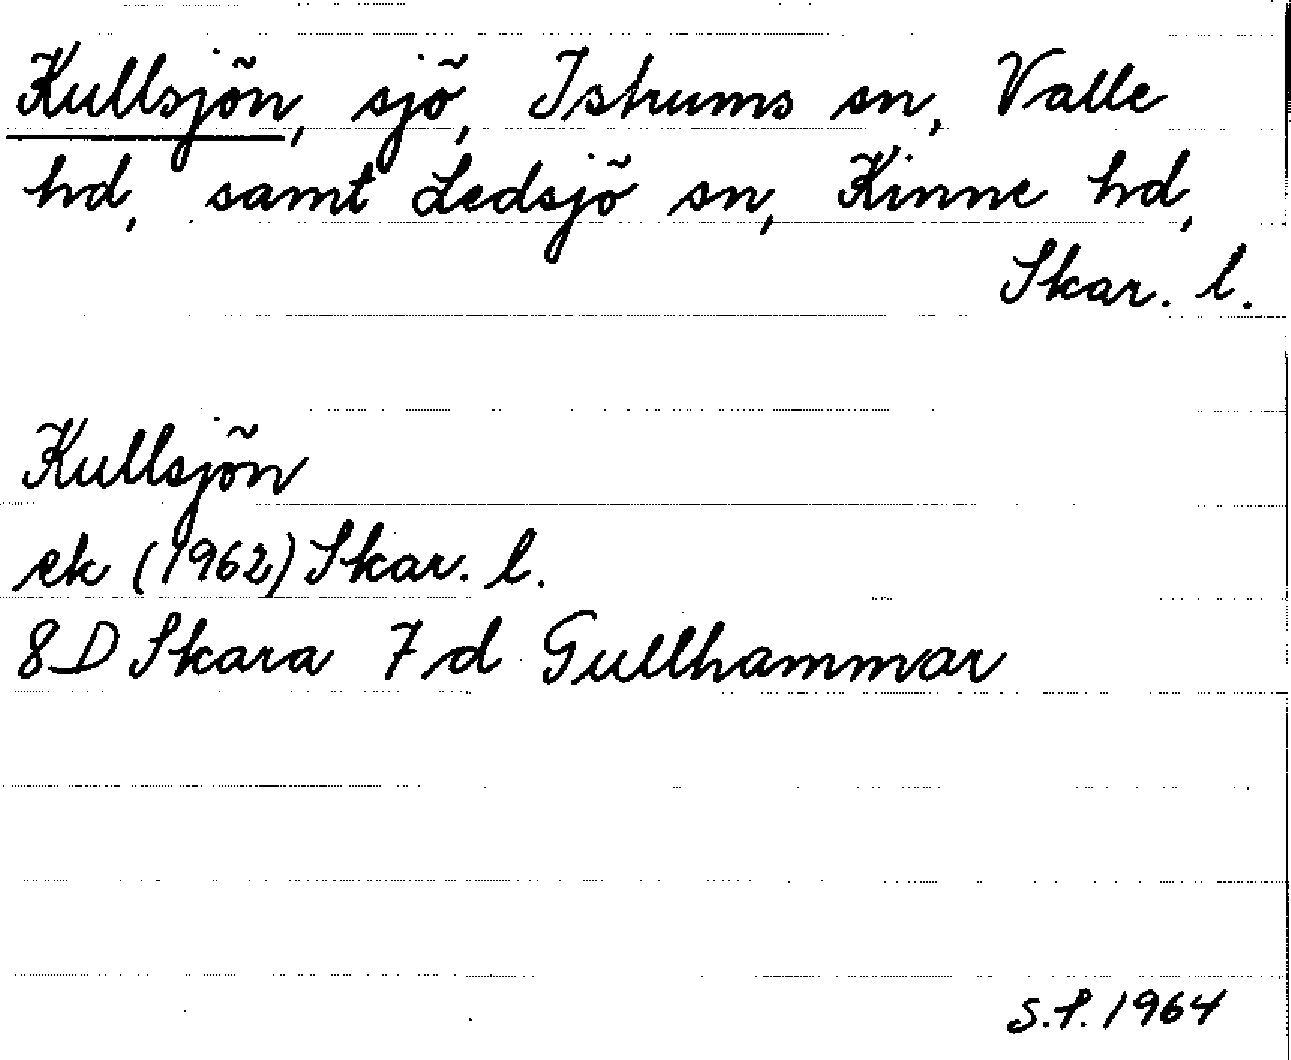 Kullsjön, sjö, Istrums sn, Valle
hd, samt Ledsjö sn, Kinne hd,
Skar. l.
Kullsjön
ek (1962) Skar. l.
8D Skara 7d Gullhammar
S.P. 1964